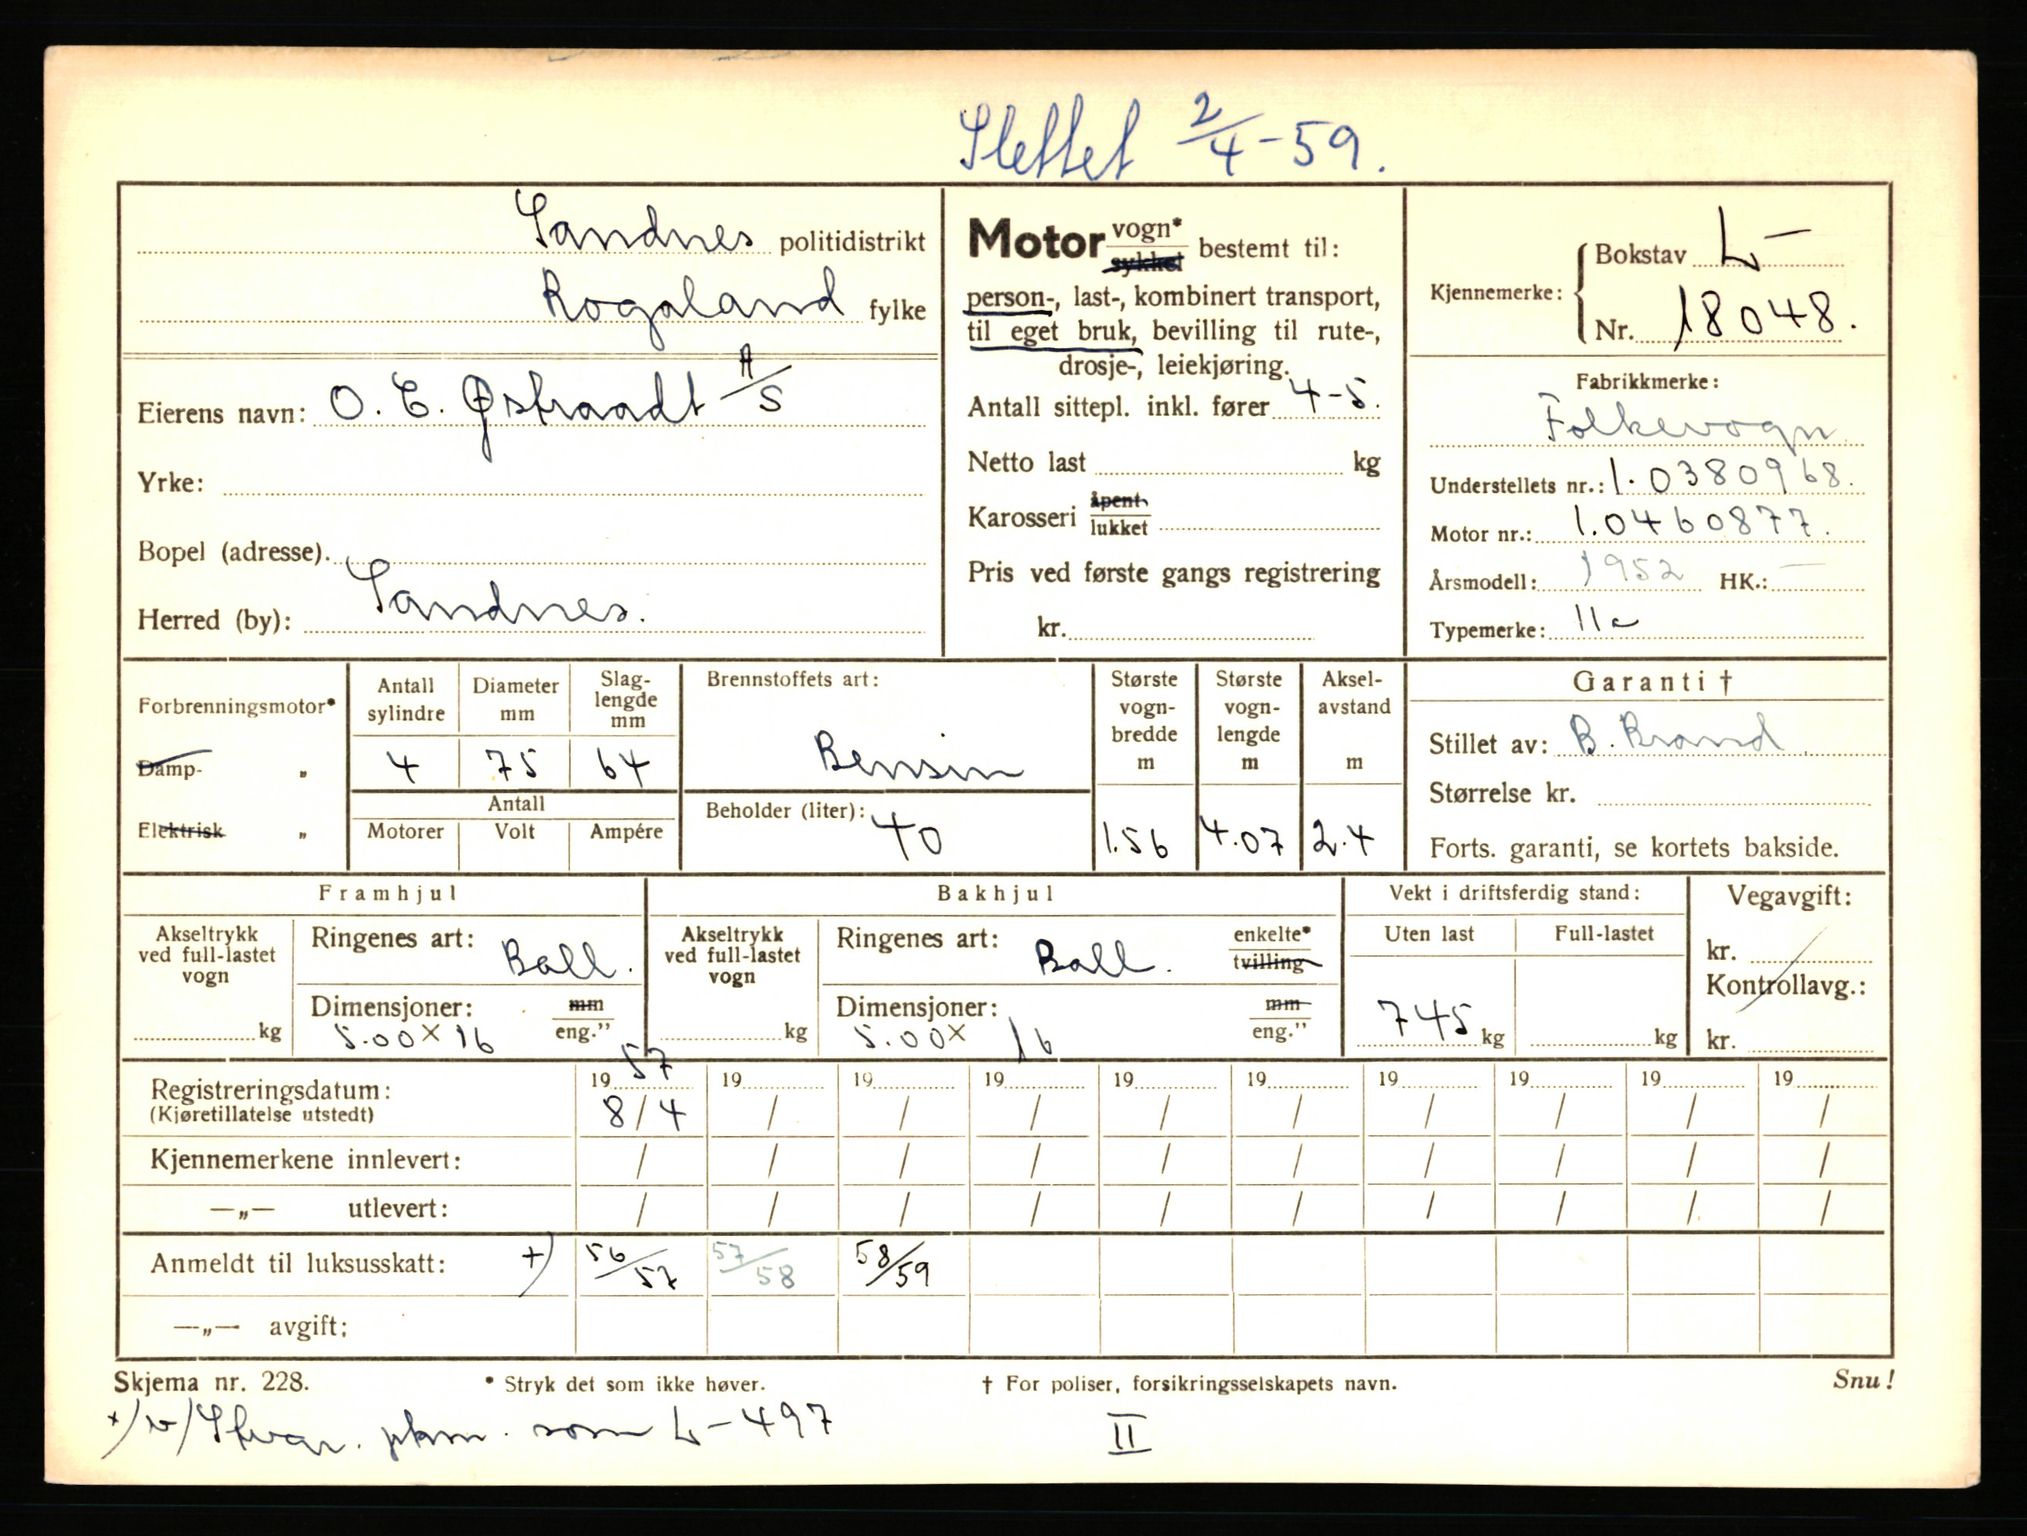 Slettet 2/4-59.
Sandnes politidistrikt
Rogaland fylke
Eierens navn: O. E. Østraadt A/S
Yrke:
Bopel (adresse).
Herred (by): Sandnes.
Motor vogn* sykkel bestemt til:
person-, last-, kombinert transport,
til eget bruk, bevilling til rute-,
drosje-, leiekjøring.
Antall sittepl. inkl. fører 4-5.
Netto last kg
Karosseri åpent lukket
Pris ved første gangs registrering
kr.
Kjennemerke: Bokstav L-
Nr. 18048.
Fabrikkmerke:
Folkevogn
Understellets nr.: 1.0380968.
Motor nr.: 1.0460877.
Årsmodell: 1952 HK.: —
Typemerke: 11c
Forbrenningsmotor*
Damp- „
Elektrisk „
Antall sylindre
4
Diameter mm
75
Slag-lengde mm
64
Antall
Motorer Volt Ampére
Brennstoffets art:
Bensin
Beholder (liter): 40
Største vogn-bredde m
1.56
Største vogn-lengde m
4.07
Aksel-avstand m
2.4
Garanti †
Stillet av: B. Brand
Størrelse kr.
Forts. garanti, se kortets bakside.
Framhjul
Akseltrykk ved full-lastet vogn
kg
Ringenes art: Ball.
Dimensjoner: mm eng.”
5.00 x 16
Bakhjul
Akseltrykk ved full-lastet vogn
kg
Ringenes art: Ball. enkelte* tvilling
Dimensjoner: mm eng.”
5.00 x 16
Vekt i driftsferdig stand:
Uten last Full-lastet
745 kg kg
Vegavgift:
kr.
Kontrollavg.:
kr.
Registreringsdatum: 19 57 19 19 19 19 19 19 19 19 19
(Kjøretillatelse utstedt) 8/4 / / / / / / / / /
Kjennemerkene innlevert: / / / / / / / / / /
—„— utlevert: / / / / / / / / / /
Anmeldt til luksusskatt: +) 56/57 57/58 58/59
—„— avgift:
Skjema nr. 228. * Stryk det som ikke høver. † For poliser, forsikringsselskapets navn. Snu!
+) som L-497 II